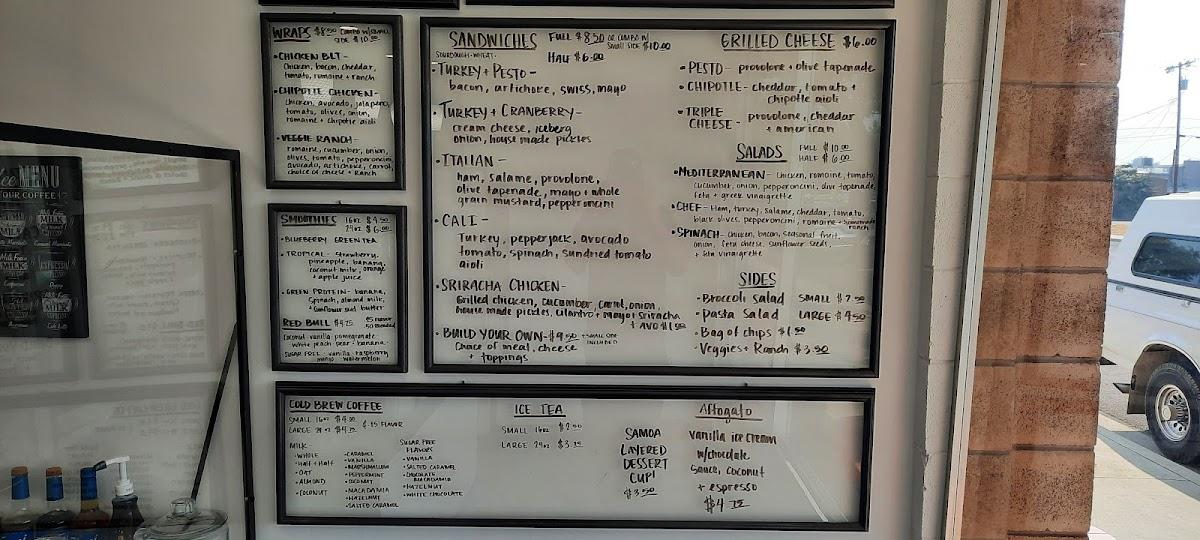 MENU
YOUR COFFEE!?
MILK
MILK
ESPRESSO
WRAPS $8.50 COMBO W/ SMALL
SIDE $10.00
• CHICKEN BLT -
Chicken, bacon, cheddar,
tomato, romaine + ranch
• CHIPOTLE CHICKEN -
Chicken, avocado, jalapeno,
tomato, olives, onion,
romaine + chipotle aioli
• VEGGIE RANCH -
romaine, cucumber, onion,
olives, tomato, pepperoncini,
avocado, artichoke, carrot,
choice of cheese + Ranch
SMOOTHIES 16oz $4.50
24oz $6.00
• BLUEBERRY GREEN TEA
• TROPICAL - strawberry,
pineapple, banana,
coconut milk, orange
+ apple juice
• GREEN PROTEIN - banana,
Spinach, almond milk,
+ sunflower seed butter
RED BULL $4.75
Coconut vanilla pomegranate
white peach pear banana
SUGAR FREE: vanilla raspberry
mango watermelon
SANDWICHES FULL $8.50 OR COMBO W/
SMALL SIDE $10.00
SOURDOUGH • WHEAT
HALF $6.00
• TURKEY + PESTO -
bacon, artichoke, swiss, mayo
• TURKEY + CRANBERRY -
cream cheese, iceberg
onion, house made pickles
• ITALIAN -
ham, salame, provolone,
olive tapenade, mayo + whole
grain mustard, pepperoncini
• CALI -
Turkey, pepperjack, avocado
tomato, spinach, sundried tomato
aioli
• SRIRACHA CHICKEN -
Grilled chicken, cucumber, carrot, onion,
house made pickles, cilantro + mayo + sriracha
+ AVO $1.00
• BUILD YOUR OWN - $9.50 + SMALL SIDE
INCLUDED
Choice of meat, cheese
+ toppings
GRILLED CHEESE $6.00
• PESTO - provolone + olive tapenade
• CHIPOTLE - cheddar, tomato +
Chipotle aioli
• TRIPLE
CHEESE - provolone, cheddar
+ american
SALADS FULL $10.00
HALF $6.00
• MEDITERRANEAN - Chicken, romaine, tomato,
cucumber, onion, pepperoncini, olive tapenade,
feta + greek vinaigrette
• CHEF - Ham, turkey, salame, cheddar, tomato,
black olives, pepperoncini, romaine + homemade
ranch
• SPINACH - Chicken, bacon, seasonal fruit,
onion, feta cheese, sunflower seeds,
+ vinaigrette
SIDES
• Broccoli salad SMALL $2.50
• Pasta Salad LARGE $4.50
• Bag of chips $1.50
• Veggies + Ranch $3.50
COLD BREW COFFEE
SMALL 16oz $4.00
LARGE 24oz $4.75
$.75 FLAVOR
MILK
• WHOLE
• Half + Half
• OAT
• ALMOND
• COCONUT
• CARAMEL
• VANILLA
• MARSHMALLOW
• PEPPERMINT
• COCONUT
• MACADAMIA
• HAZELNUT
• SALTED CARAMEL
SUGAR FREE
FLAVORS
• VANILLA
• SALTED CARAMEL
• CHOCOLATE
MACADAMIA
• HAZELNUT
• WHITE CHOCOLATE
ICE TEA
SMALL 16oz $2.50
LARGE 24oz $3.75
SAMOA
LAYERED
DESSERT
CUP!
$3.50
Affogato
vanilla ice cream
w/chocolate
sauce, coconut
+ espresso
$4.75